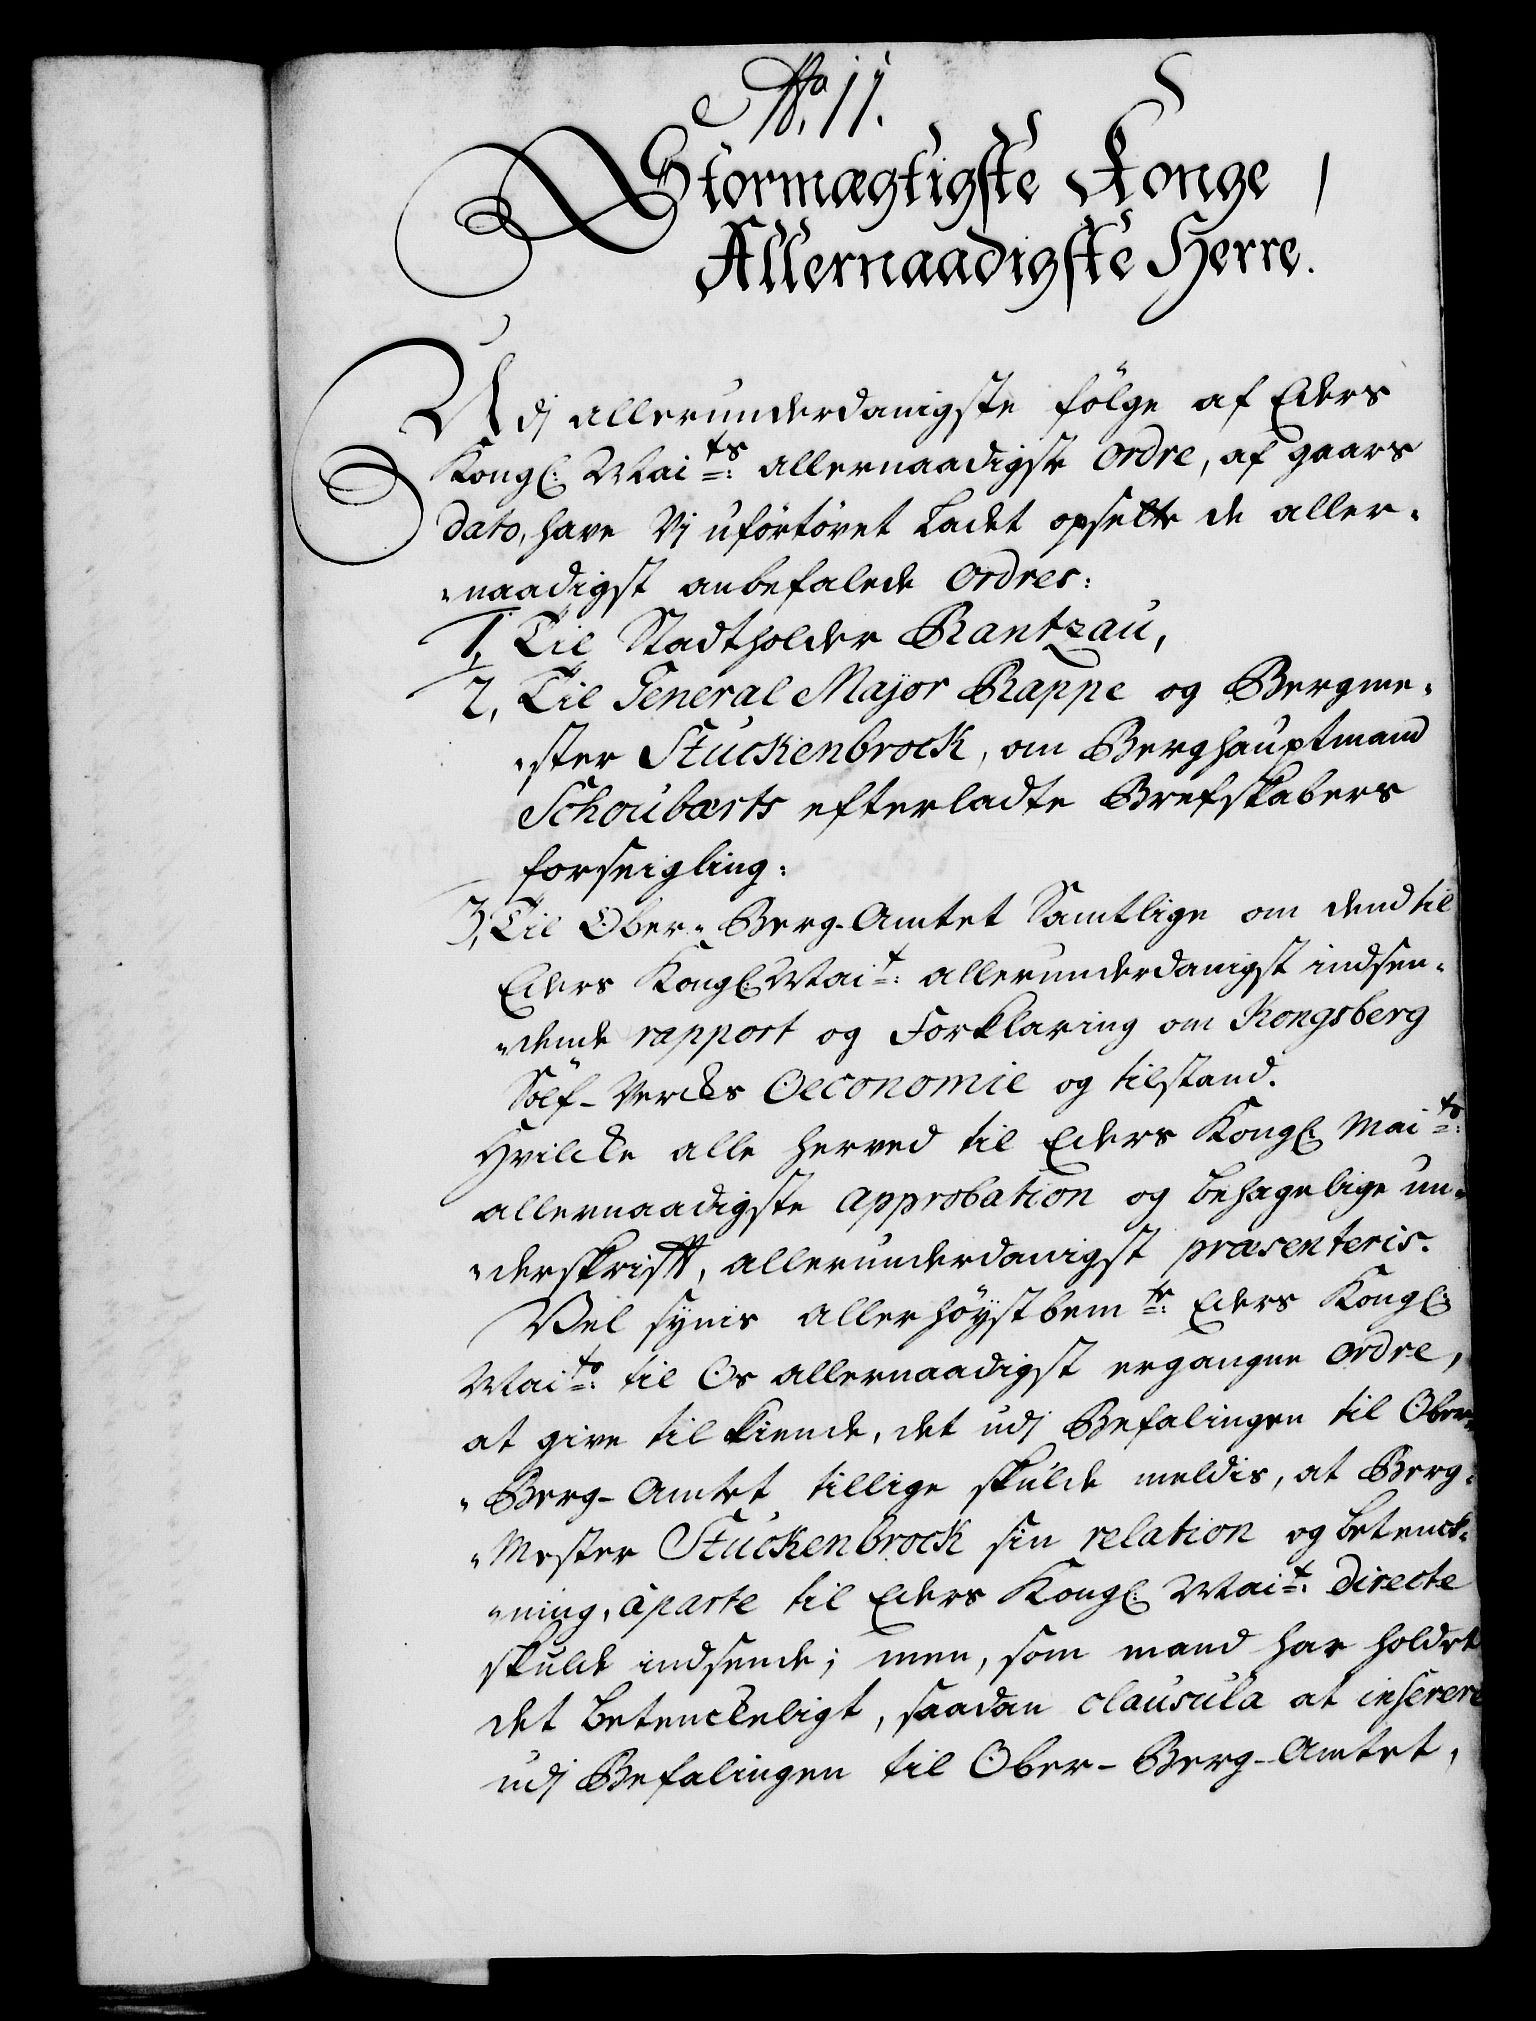 No. 11.
Stormægtigste Konge
Allernaadigste Herre.
Udj allerunderdanigste følge af Eders
Kongl: Mai<sup>ts</sup>: allernaadigste ordre, af gaars
dato, have Vj ufortøvet Ladet opsette de aller-
naadigst anbefalede ordres:
1, Til Stadtholder Rantzau,
2, Til General Major Rappe og Bergme-
ster Stuckenbrock, om Berghauptmand
Schoubærts efterladte Brefskabers
forseigling:
3, Til Ober-Berg-Amtet Samtlige om dend til
Eders Kongl: Mai<sup>t</sup>: allerunderdanigst indsen-
dende rapport og Forklaring om Kongsberg
Sölf-Verckes Oeconomie og tilstand.
Hvilcke alle herved til Eders Kongl: Mai<sup>ts</sup>:
allernaadigste approbation og behagelige un-
derskrifft, allerunderdanigst præsenteris.
Vel synis allerhöystbem<sup>te</sup>: Eders Kongl:
Mai<sup>ts</sup>: til Os allernaadigst ergangne ordre,
at give til kiende, det udj Befalingen til Ober-
Berg-Amtet tillige skulde meldis, at Berg-
Mester Stuckenbrock sin relation og betenck-
ning, àparte til Eders Kongl: Mai<sup>t</sup>: directe
skulde indsende; men, som mand har holdet
det betenckeligt, saadan clausula at inserere
udj Befalingen til Ober-Berg-Amtet,